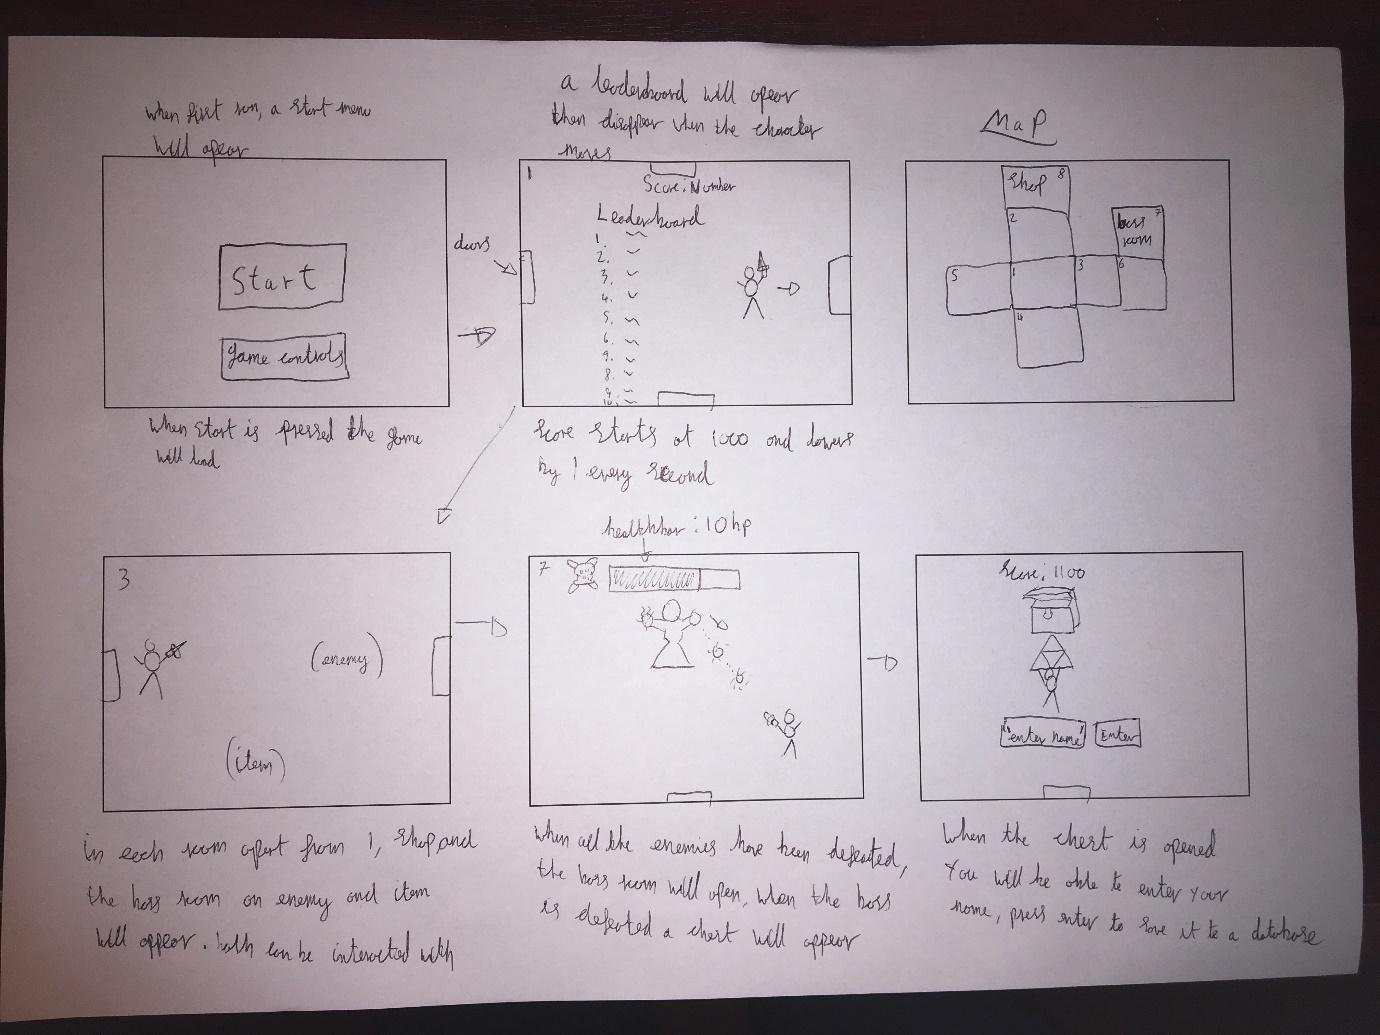 When first run, a start menu
will apear
Start
game controls
When start is pressed the game
will load
a leaderboard will apear
then disappear when the character
moves
doors
1
Score: Number
Leaderboard
1.
2.
3.
4.
5.
6.
7.
8.
9.
10.
Score starts at 1000 and lowers
by 1 every second
MaP
Shop 8
2
boss 7
room
5
1
3
6
4
3
(enemy)
(item)
in each room apart from 1, shop and
the boss room an enemy and item
will appear. both can be interacted with
healthbar: 10hp
7
When all the enemies have been defeated,
the boss room will open, when the boss
is defeated a chest will appear
Score: 1100
"enter name"
Enter
When the chest is opened
You will be able to enter your
name, press enter to save it to a database